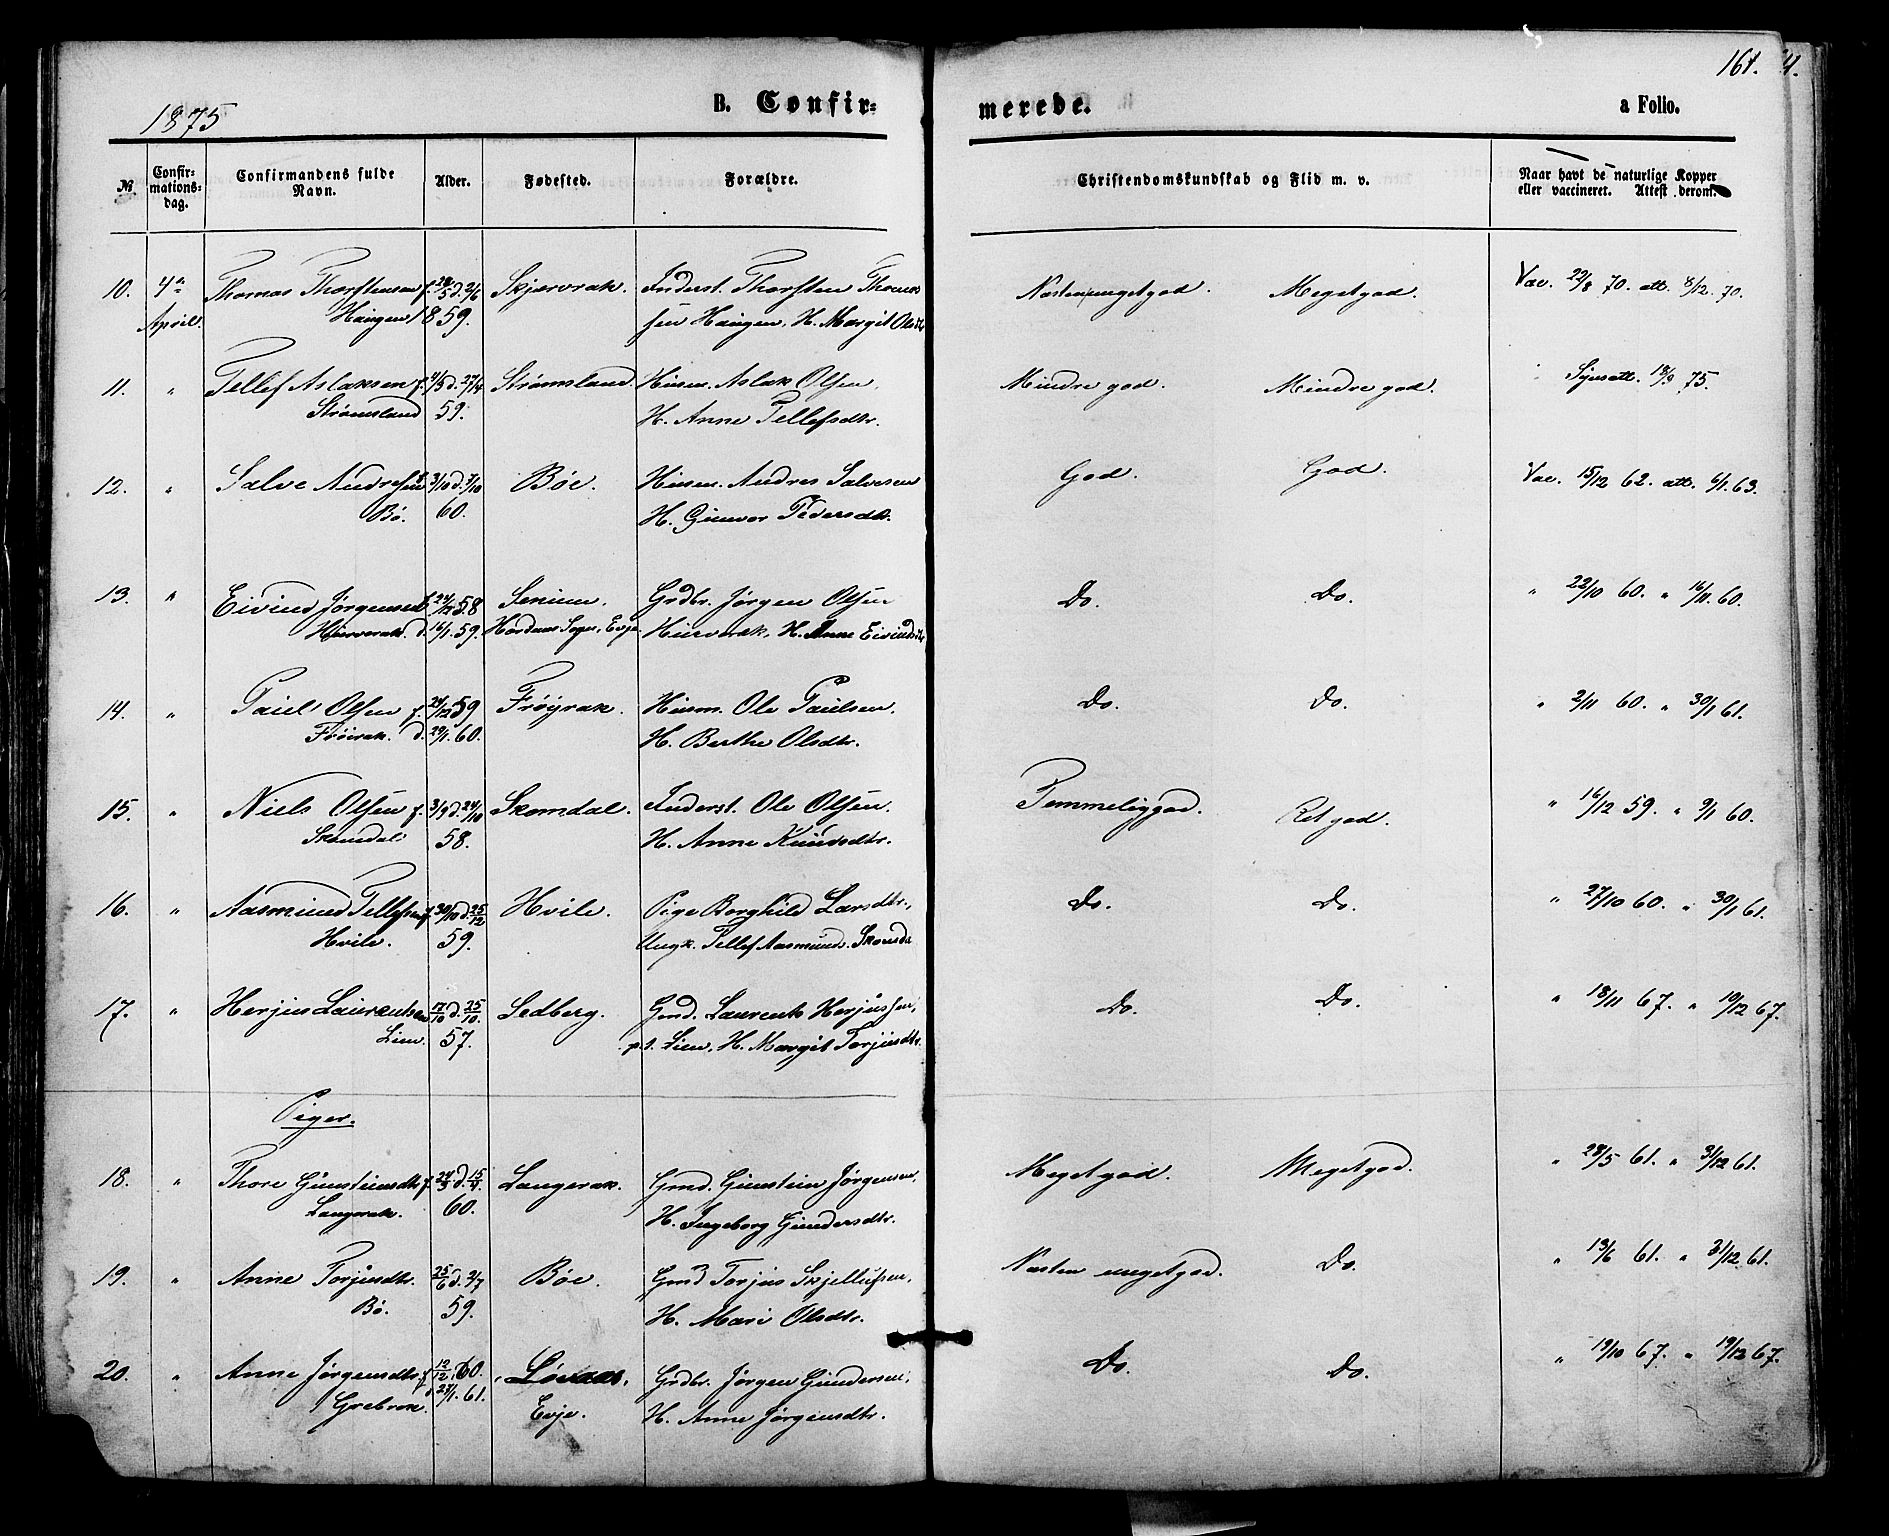 1875
B. Confir=
merede.
a Folio.
161.
№.
Confir-
mations-
dag.
Confirmandens fulde
Navn.
Alder.
Fødested.
Forældre.
Christendomskundskab og Flid m. v.
Naar havt de naturlige Kopper
eller vaccineret. Attest derom.
10. 4de Thomas Thorstensen f. 28/5 d. 2/6 Skjervrak. Inderst. Thorsten Thomas Næsten megetgod. Megetgod. Vac. 22/8 70. att. 8/12. 70.
April. Haugen 1859. sen Haugen, H. Margit Olsdtr
11. " Tellef Aslaksen f. 4/3 d. 27/4 Strømsland. Husm. Aslak Olsen, Mindre god. Mindre god. Synsatt. 18/9 75.
Strømsland 59. H. Anne Tellefsdtr.
12. " Salve Andresen 3/10 d. 7/10 Bøe. Husm. Andres Salvesen God. God. Vac. 15/12 62. att. 6/1. 63.
Bö. 60. H. Gunvor Pedersdtr.
13. " Eivind Jørgensen f. 24/12 58 Senum. Grdbr. Jørgen Olsen Do. Do. " 22/10 60. " 16/11. 60.
d. 16/1. 59. Hordnæs Sogn, Evje H. Anne Eivindsdtr
14. " Paul Olsen f. 29/12 59 Frøyrak. Husm. Ole Paulsen. Do. Do. " 2/11 60. " 30/1 61.
Frøirak. d. 29/1. 60. H. Berthe Olsdtr.
15. " Niels Olsen f. 3/9 d. 24/10 Skomdal. Inderst. Ole Olsen. Temmeliggod. Ret god. " 16/12 59. " 9/1 60.
Skomdal 58. H. Anne Knudsdtr.
16. " Aasmund Tellefsen f. 30/10 d. 25/12 Hvile. Pige Borghild Larsdtr, Do. Do. " 27/10 60. " 30/1 61.
Hvile. 59. Ungk. Tellef Aasmunds. Skomda
17. " Herjus Laurentsen 17/10 d. 25/10. Sedberg. Gmd. Laurents Herjussen, Do. Do. " 18/11 67. " 19/12 67.
Lien. 57. p. t. Lien, H. Margit Torjusdtr.
Piger.
18. " Thore Gunsteinsdtr f. 24/3 d. 15/4. Langerak. Gmd. Gunstein Jørgensen, Megetgod. Megetgod. " 28/5 61. " 31/12 61.
Langerak. 60. H. Ingeborg Gundersdtr.
19. " Anne Torjusdtr. 25/6 d. 3/7 Bøe. Gmd Torjus Skjellufsen, Næsten megetgod. Do. " 13/6 61. " 31/12. 61.
Bö. 59. H. Mari Olsdtr.
20. " Anne Jørgensdtr. f. 12/12. 60. Løvaas, Grdbr. Jørgen Gundersen, Do. Do. " 19/10 67. " 19/12 67.
Grebrok. d 27/1. 61. Evje. H. Anne Jørgensdtr.